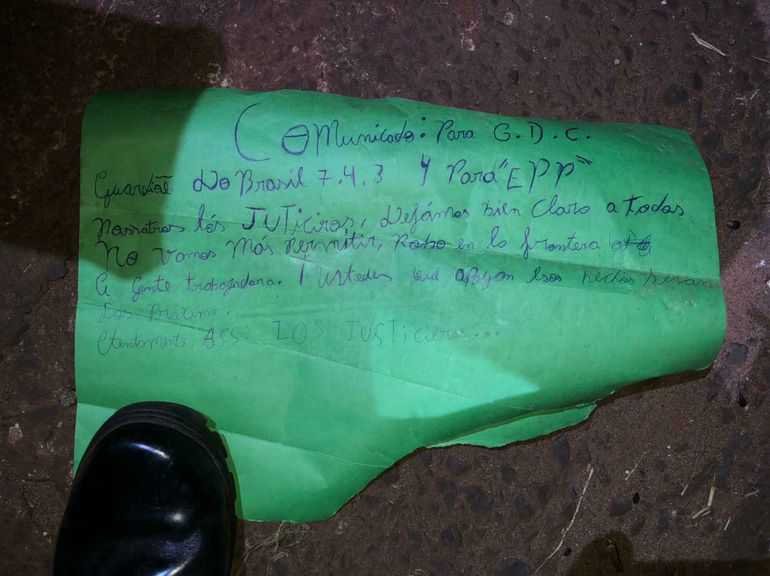 Comunicado: Para G.D.C.
Guardiãe do Brasil 7.4.3 y Para "EPP"
Nosotros los JUTiciros, Dejámos bien Claro a todas
No vamos Más Permitir, Robo en la frontera
a gente trabajadora. Y ustedes que apoyan esos hechos seran
los Proximo.
Atentamente, ASS: LOS JUSTicieros...